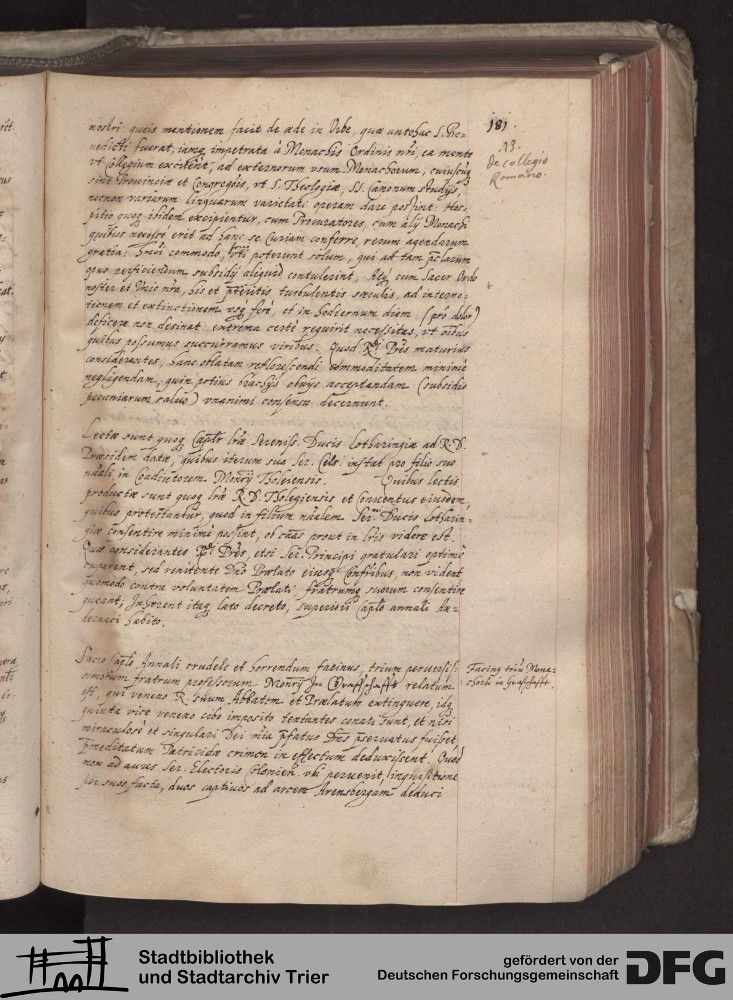 181.
nostri queis mentionem facit de æde in Urbe, quæ antehac S. Be-
nedicti fuerat, iamq impetrata à Monachis Ordinis nri, ea mente
vt Collegium excitent, ad externorum vsum Monachorum, cuiuscuq
sint Prouinciæ et Congregõis, vt S. Theologiæ, SS. Canonum studijs,
necnon variarum linguarum varietati operam dare possint: Hos-
pitio quoq ibidem excipientur, cum Procuratores, tum alij Monachi
quibus necesse erit ad hanc se Curiam conferre, rerum agendarum
gratia: commodo, vti poterunt solum, qui ad tam pclarum
opus perficiendum subsidij aliquid contulerint, Atq cum Sacer Ordo
noster et Vnio nra, his et pteritis turbulentis sæculis, ad interne-
tionem et extinctionem vsq fere, et in hodiernum diem (pro dolor)
deficere non desinat: extrema certe requirit necessitas, vt oibus
quibus possumus succurramus viribus. Quod Rdi Pres maturius
considerantes, hanc oblatam reflorescendi commoditatem minimè
negligendam, quin potius brachijs obuijs acceptandam (subsidio
pecuniarum saluo) vnanimi consensu decernunt.
13.
De collegio
Romano.
Lectæ sunt quoq Caplr lræ Sereniss: Ducis Lotharingiæ ad R. D.
Præsidem datæ, quibus iterum sua Ser. Cels: instat pro filio suo
nãali, in Coadiutorem Monrij Tholeiensis. Quibus lectis
productæ sunt quoq lræ R. D. Tholegiensis et Conuentus eiusdem,
quibus protestantur, quod in filium nãalem Sermi Ducis Lotharin-
giæ consentire minimè possint, ob caus prout in lris videre est.
Quæ considerantes Rdi Pres, etsi Ser. Principi gratulari optimè
cuperent, sed renitente Dno Prælato eiusq Confribus, non vident
quomodo contra voluntatem Prælati fratrumq suorum consentire
queant; Inhærent itaq lato decreto, superiori Caplo annali La-
dernaci habito.
Sacro Caplo Annali crudele et horrendum facinus trium peruersis-
simorum fratrum professorum Monrij In Graffschafft relatum
est, qui veneno R. suum Abbatem et Prælatum extinguere, idq
quinta vice veneno cibo imposito tentantes conati sunt, et nisi
miraculosè et singulari Dei mia pfatus Dns pseruatus fuisset,
pmeditatum Patricidæ crimen in effectum deduxissent. Quod
nom ad aures Ser. Electoris Colonien. vbi peruenit, inquisitione
per suos facta, duos captiuos ad arcem Arensbergam deduci
Facinq triũ Mona-
chorũ in Grafschafft.
Stadtbibliothek
und Stadtarchiv Trier
gefördert von der
Deutschen Forschungsgemeinschaft
DFG